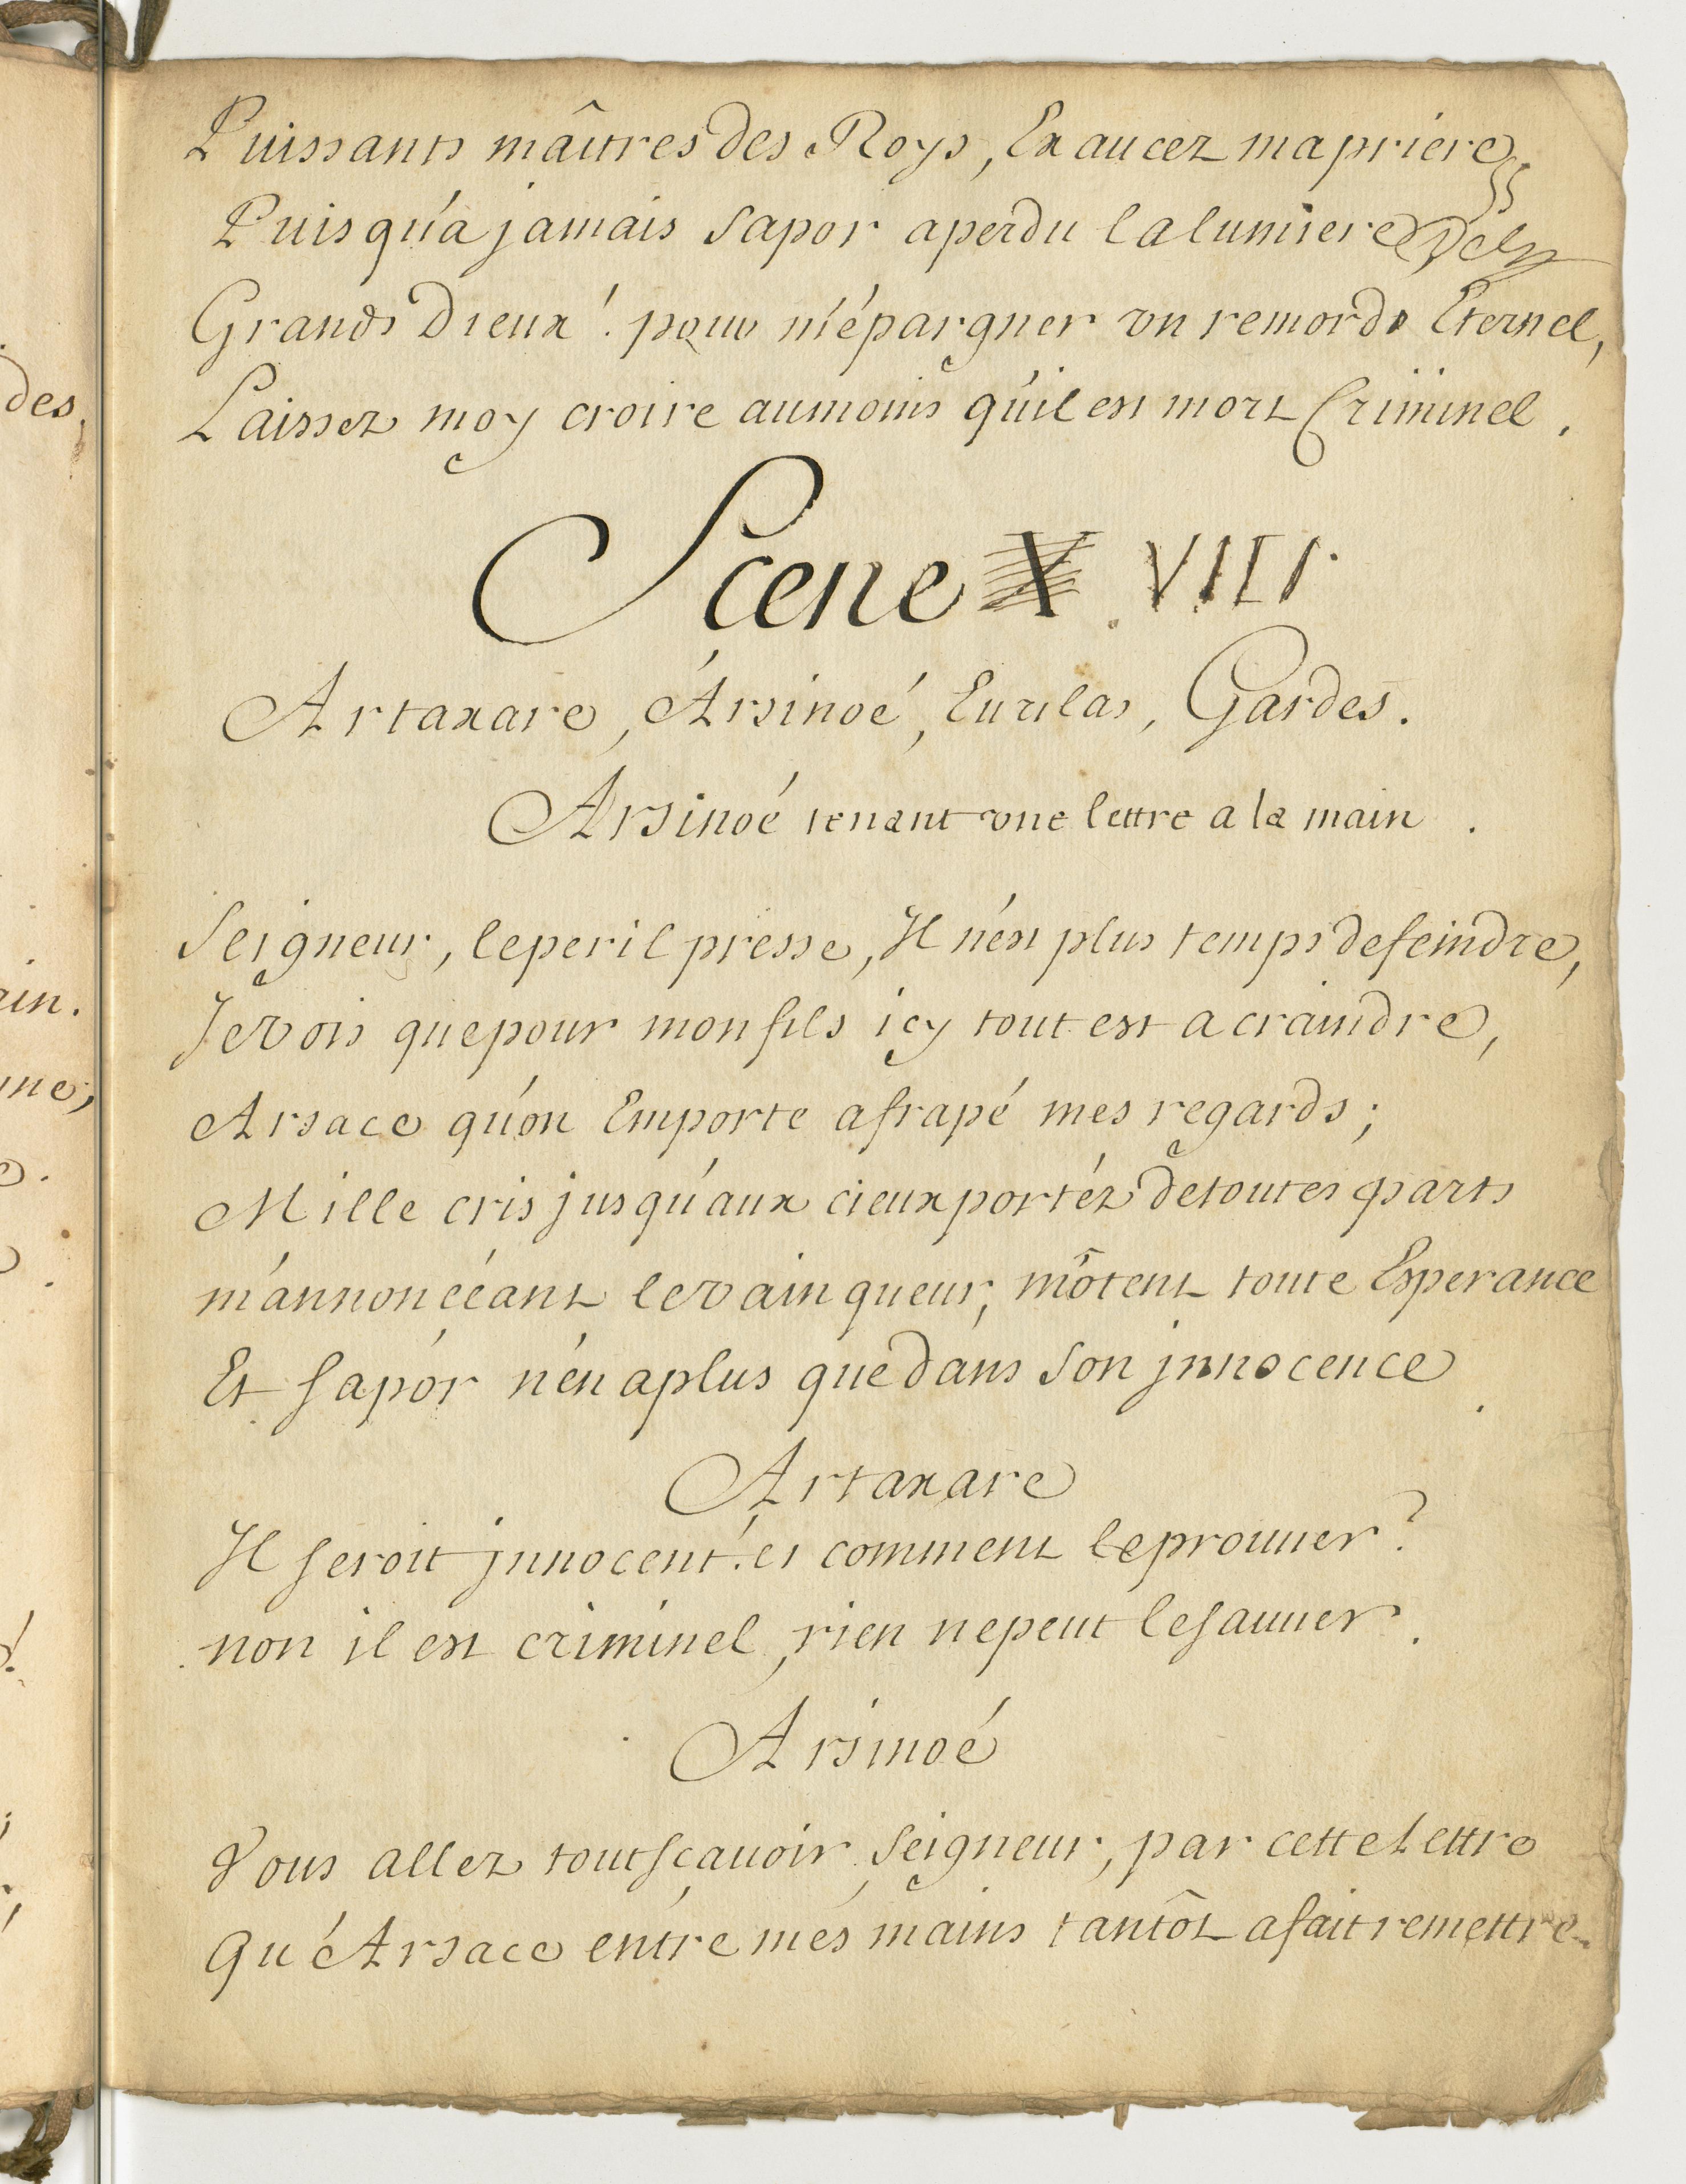 Puissants maîtres des Roys, Exaucez ma priere,
Puisqu'a jamais Sapor a perdu la lumiere
Grands Dieux! pour m'épargner vn remords Eternel,
Laissez moy croire au moins qu'il est mort Criminel.
Scene X VIII.
Artaxare, Arsinoé, Eurilas, Gardes.
Arsinoé tenant vne lettre a la main.
Seigneur, le peril presse, Il n'est plus temps de feindre,
Je vois que pour mon fils icy tout est a craindre,
Arsace qu'on Emporte a frapé mes regards;
Mille cris jusqu'aux cieux portéz de toutes parts
m'annonceant le vainqueur, m'ôtent toute Esperance
Et Sapor n'en a plus que dans son jnnocence.
Artaxare
Il seroit jnnocent! et comment le prouuer?
non il est criminel, rien ne peut le sauuer.
Arsinoé
Vous allez tout sçauoir, Seigneur, par cette Lettre
Qu'Arsace entre mes mains tantôt a fait remettre.
des,
ain.
me;